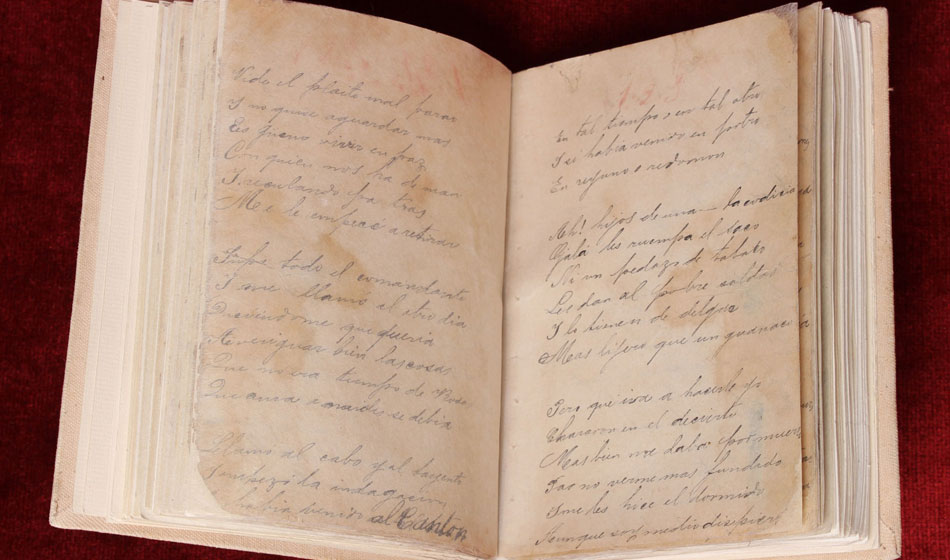 Vide el plaito mal parar
Y no quise aguardar mas
Es gueno vivir en paz
Con quien nos ha de man
Y reculando pa tras
Me le empecé a retirar
Supo todo el comandante
Y me llamó al otro dia
Diciendome que queria
Aviriguar bien las cosas
Que no era tiempo de Rosa
Que aora a naides se debia
Llamó al cabo y al sargento
Y empezó la indagacion
habia venido al Canton
En tal tiempo o en tal otro
Y si habia venido en potro
En reyuno o redomon
Ah! hijos de una — la codicia
Ojalá les ruempa el saco
Ni un pedazo de tabaco
Les dan al pobre soldao
Y lo tienen de delgao
Mas lijero que un guanaco
Pero qué iva a hacerle yo
Charavon en el decierto
Mas bien me daba por muer
Pa no verme mas fundido
Y me les hice el dormido
Aunque soy medio dispier